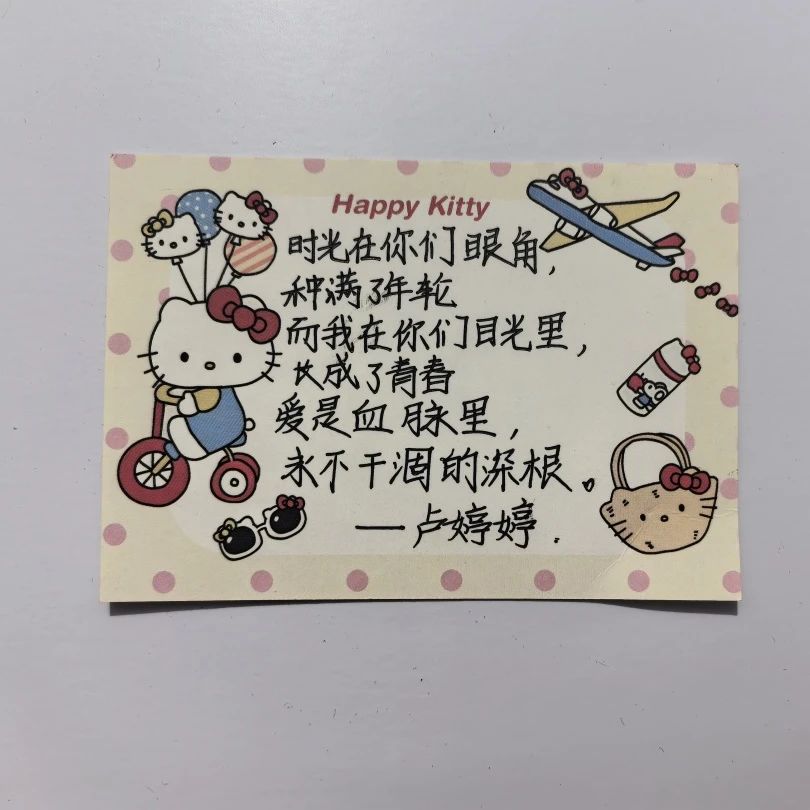 Happy Kitty
时光在你们眼角，
种满了年轮
而我在你们目光里，
长成了青春
爱是血脉里，
永不干涸的深根。
——卢婷婷.